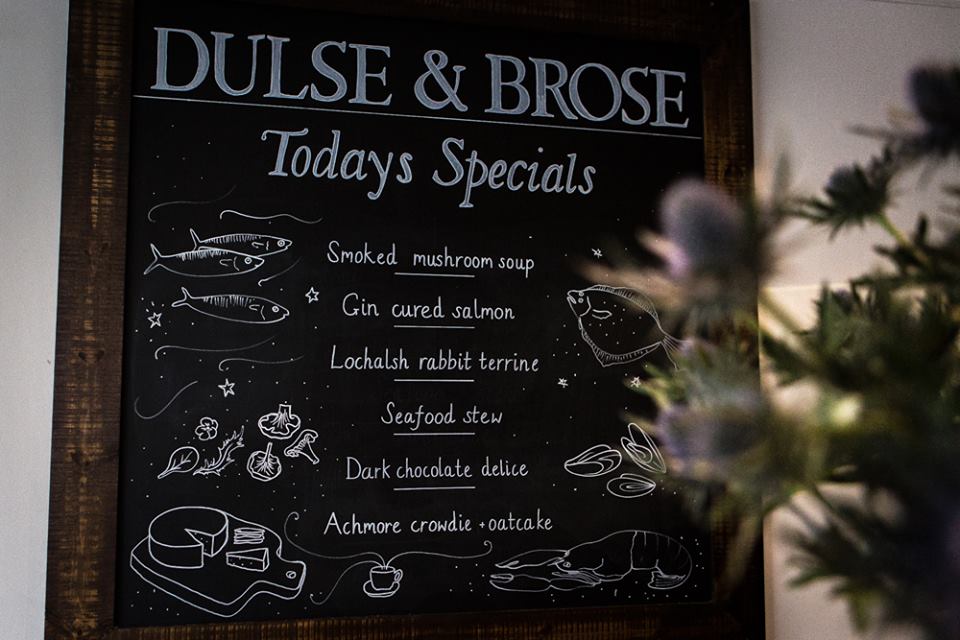 DULSE & BROSE
Todays Specials
Smoked mushroom soup
Gin cured salmon
Lochalsh rabbit terrine
Seafood stew
Dark chocolate delice
Achmore crowdie + oatcake